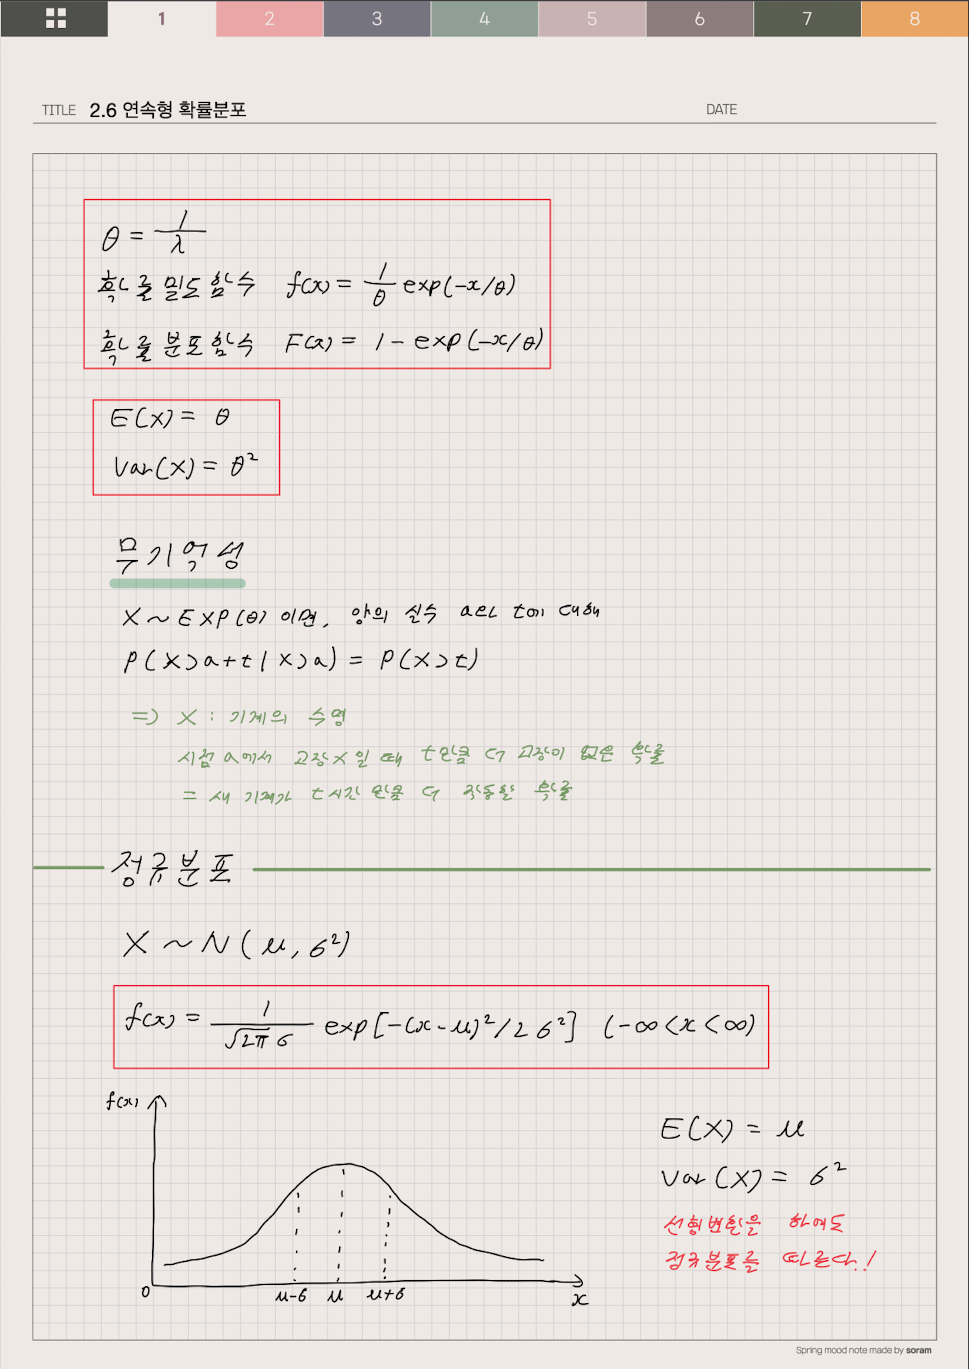 1 2 3 4 5 6 7 8
TITLE 2.6 연속형 확률분포 DATE
θ = 1/λ
확률 밀도 함수 f(x) = 1/θ exp(-x/θ)
확률 분포 함수 F(x) = 1 - exp(-x/θ)
E(X) = θ
Var(X) = θ²
무기억성
X ~ EXP(θ) 이면, 양의 실수 a와 t에 대해
P(X>a+t|X>a) = P(X>t)
=> X : 기계의 수명
시점 a에서 고장X일 때 t만큼 더 고장이 없은 확률
= 새 기계가 t시간 만큼 더 작동할 확률
정규분포
X ~ N(μ, σ²)
f(x) = 1/√2π σ exp[-(x-μ)²/2σ²] (-∞<x<∞)
f(x)
E(X) = μ
Var(X) = σ²
선형변환을 하여도
정규분포를 따른다.!
0 μ-σ μ μ+σ x
Spring mood note made by soram